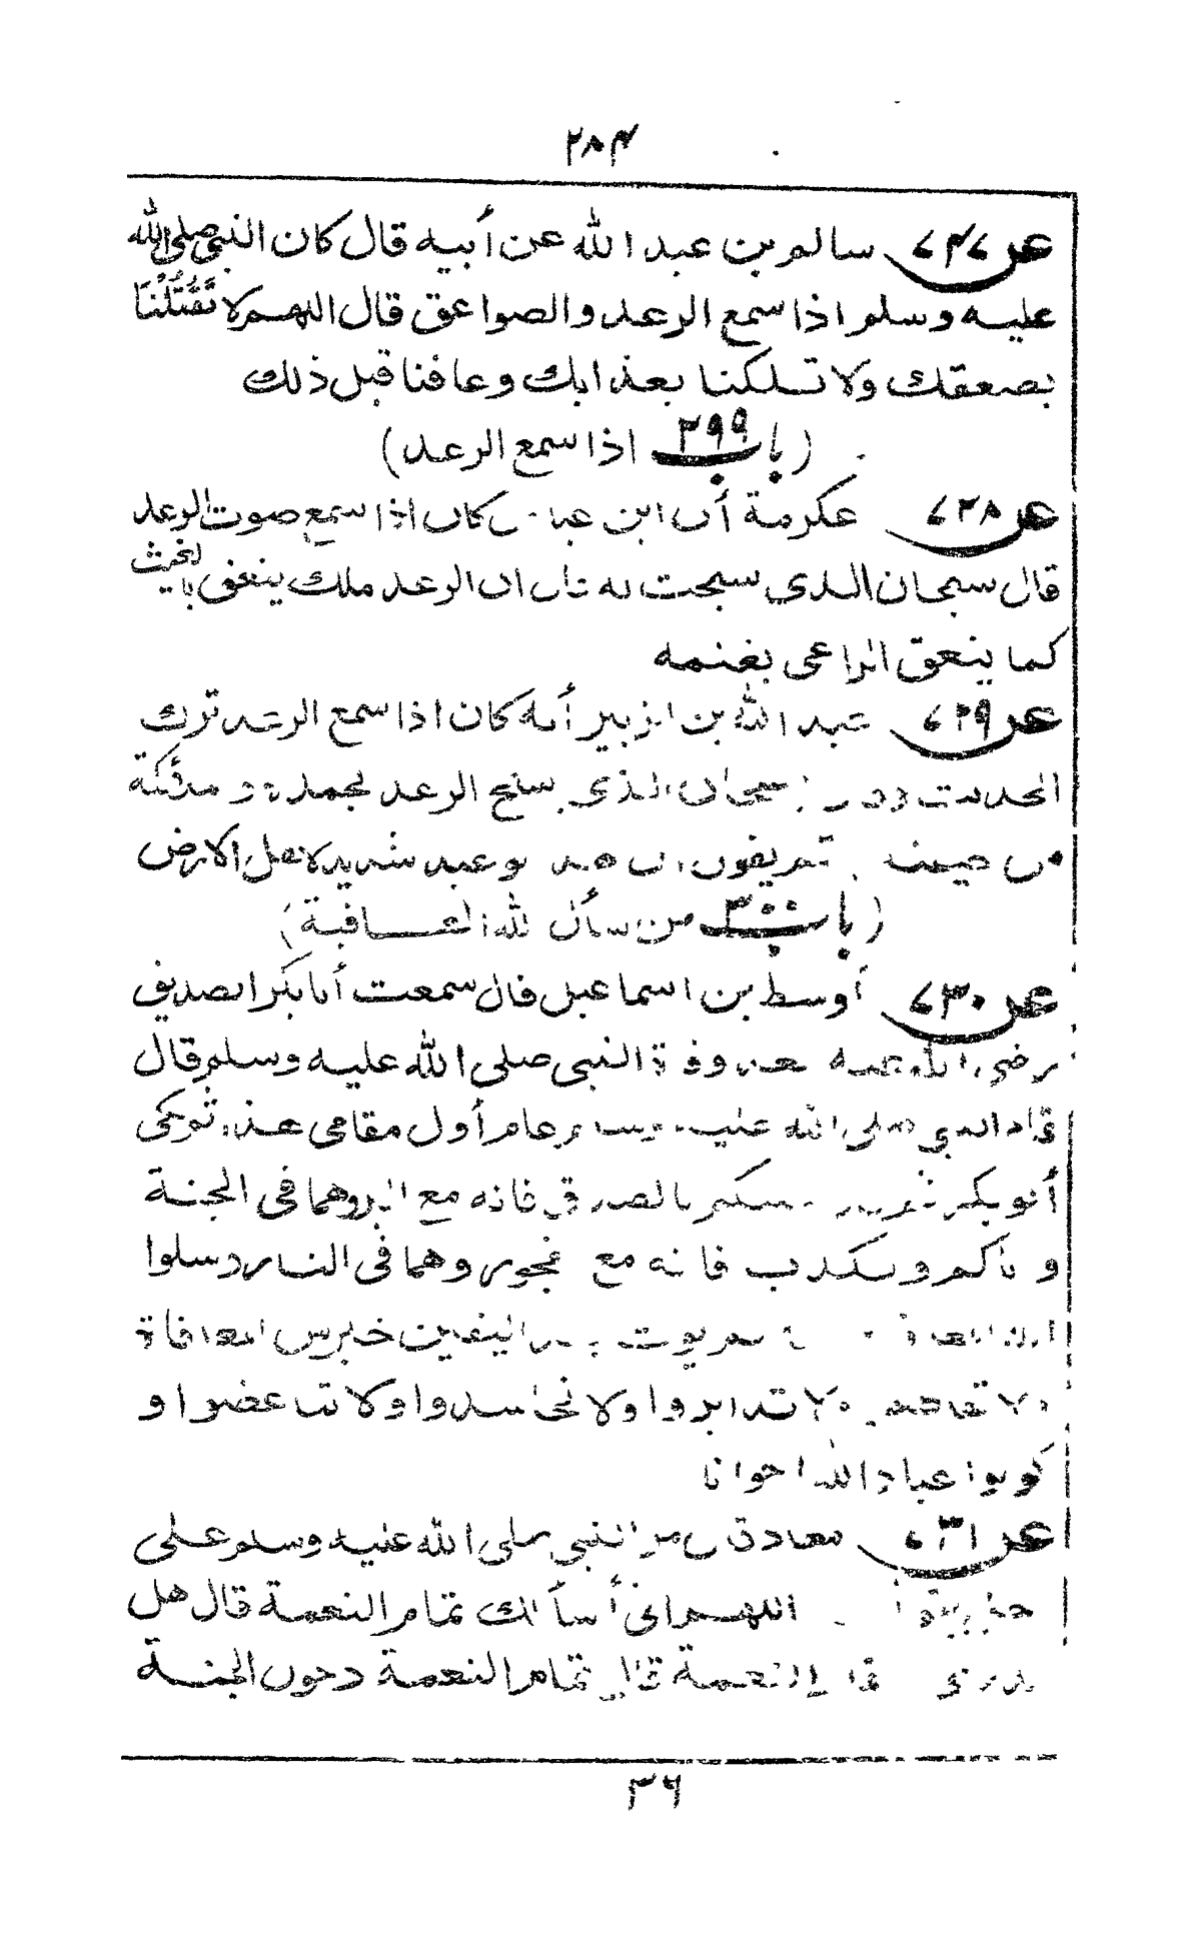 ۲۸۴
عن سالم بن عبد الله عن أبيه قال كان النبي صلى الله
عليه وسلم اذا سمع الرعد والصواعق قال اللهم لا تَقْتُلْنَا
بصعقك ولا تهلكنا بعذابك وعافنا قبل ذلك
(باب ۲۹۹ اذا سمع الرعد)
عن ۷۲۸ عكرمة أن ابن عباس كان اذا سمع صوت الرعد
قال سبحان الذي سبحت له قال ان الرعد ملك ينعق بالغيث
كما ينعق الراعى بغنمه
عن ۷۲۹ عبد الله بن الزبير أنه كان اذا سمع الرعد ترك
الحديث وقال سبحان الذى يسبح الرعد بحمده و ملائكة
من خيفته ثم يقول ان هذا لوعيد شديد لاهل الارض
(باب ۳۰۰ من سأل الله العافية)
عن ۷۳۰ أوسط بن اسماعيل قال سمعت أبا بكر الصديق
رضى الله عنه بعد وفاة النبى صلى الله عليه وسلم قال
قام النبي صلى الله عليه وسلم عام أول مقامى هذا ثم بكى
أبو بكر ثم قال عليكم بالصدق فانه مع البر وهما فى الجنة
و اياكم والكذب فانه مع الفجور وهما فى النار وسلوا
الله المعافاة اليقين خير من المعافاة
ولا تقاطعوا ولا تدابروا ولا تحاسدوا ولا تباغضوا و
كونوا عباد الله اخوانا
عن ۷۳۱ معاذ قال مر النبي صلى الله عليه وسلم على
رجل يقول اللهم انى أسألك تمام النعمة قال هل
تدرى ما تمام النعمة قال تمام النعمة دخول الجنة
۳۶